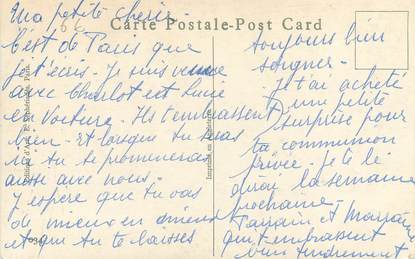 Carte Postale-Post Card
Ma petite cherie
C'est de Paris que
je t'écris - Je suis venue
avec Charlot et Luce
en voiture - Ils t'embrassent
bien - Et lorsque tu seras
ici tu te promeneras
aussi avec nous -
J'espère que tu vas
de mieux en mieux
et que tu te laisses
toujours bien
soigner -
je t'ai acheté
une petite
surprise pour
ta communion
privée - je te le
dirai la semaine
prochaine -
Parrain et Marraine
qui t'embrassent
bien tendrement